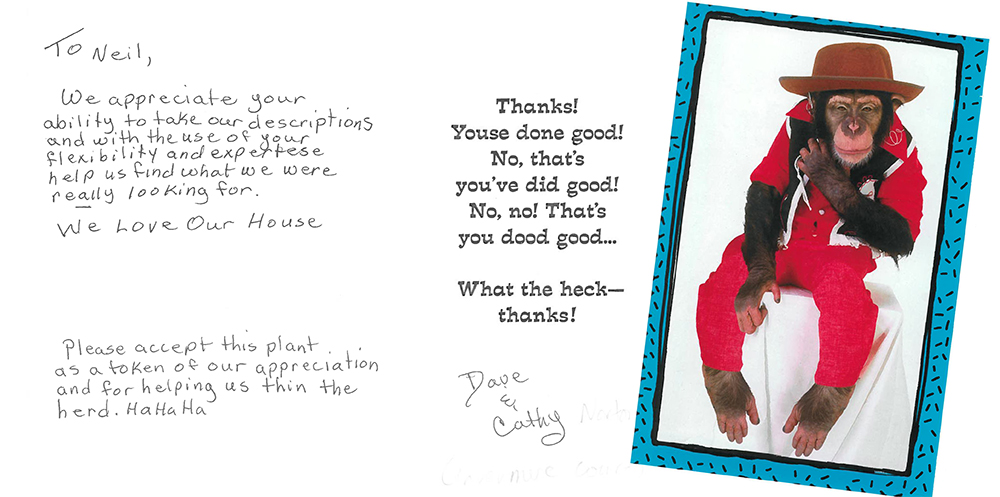 To Neil,
We appreciate your
ability to take our descriptions
and with the use of your
flexibility and expertese
help us find what we were
really looking for.
We Love Our House
Please accept this plant
as a token of our appreciation
and for helping us thin the
herd. HaHaHa
Thanks!
Youse done good!
No, that's
you've did good!
No, no! That's
you dood good...
What the heck—
thanks!
Dave
&
Cathy